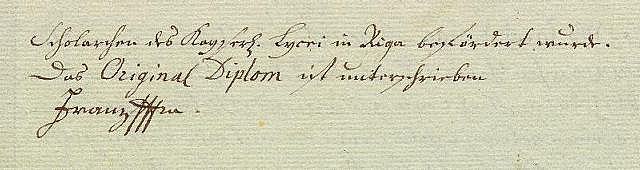 Scholarchen des Kayserl. Lycei in Riga befördert wurde.
Das Original Diplom ist unterschrieben
Franz